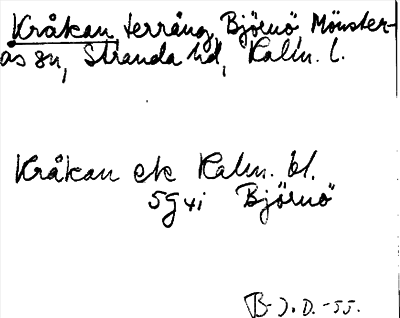 Kråkan, terräng, Björnö, Mönster-
ås sn, Stranda hd, Kalm. l.
Kråkan ek Kalm. bl.
5g xi Björnö
B-J.D.-55.